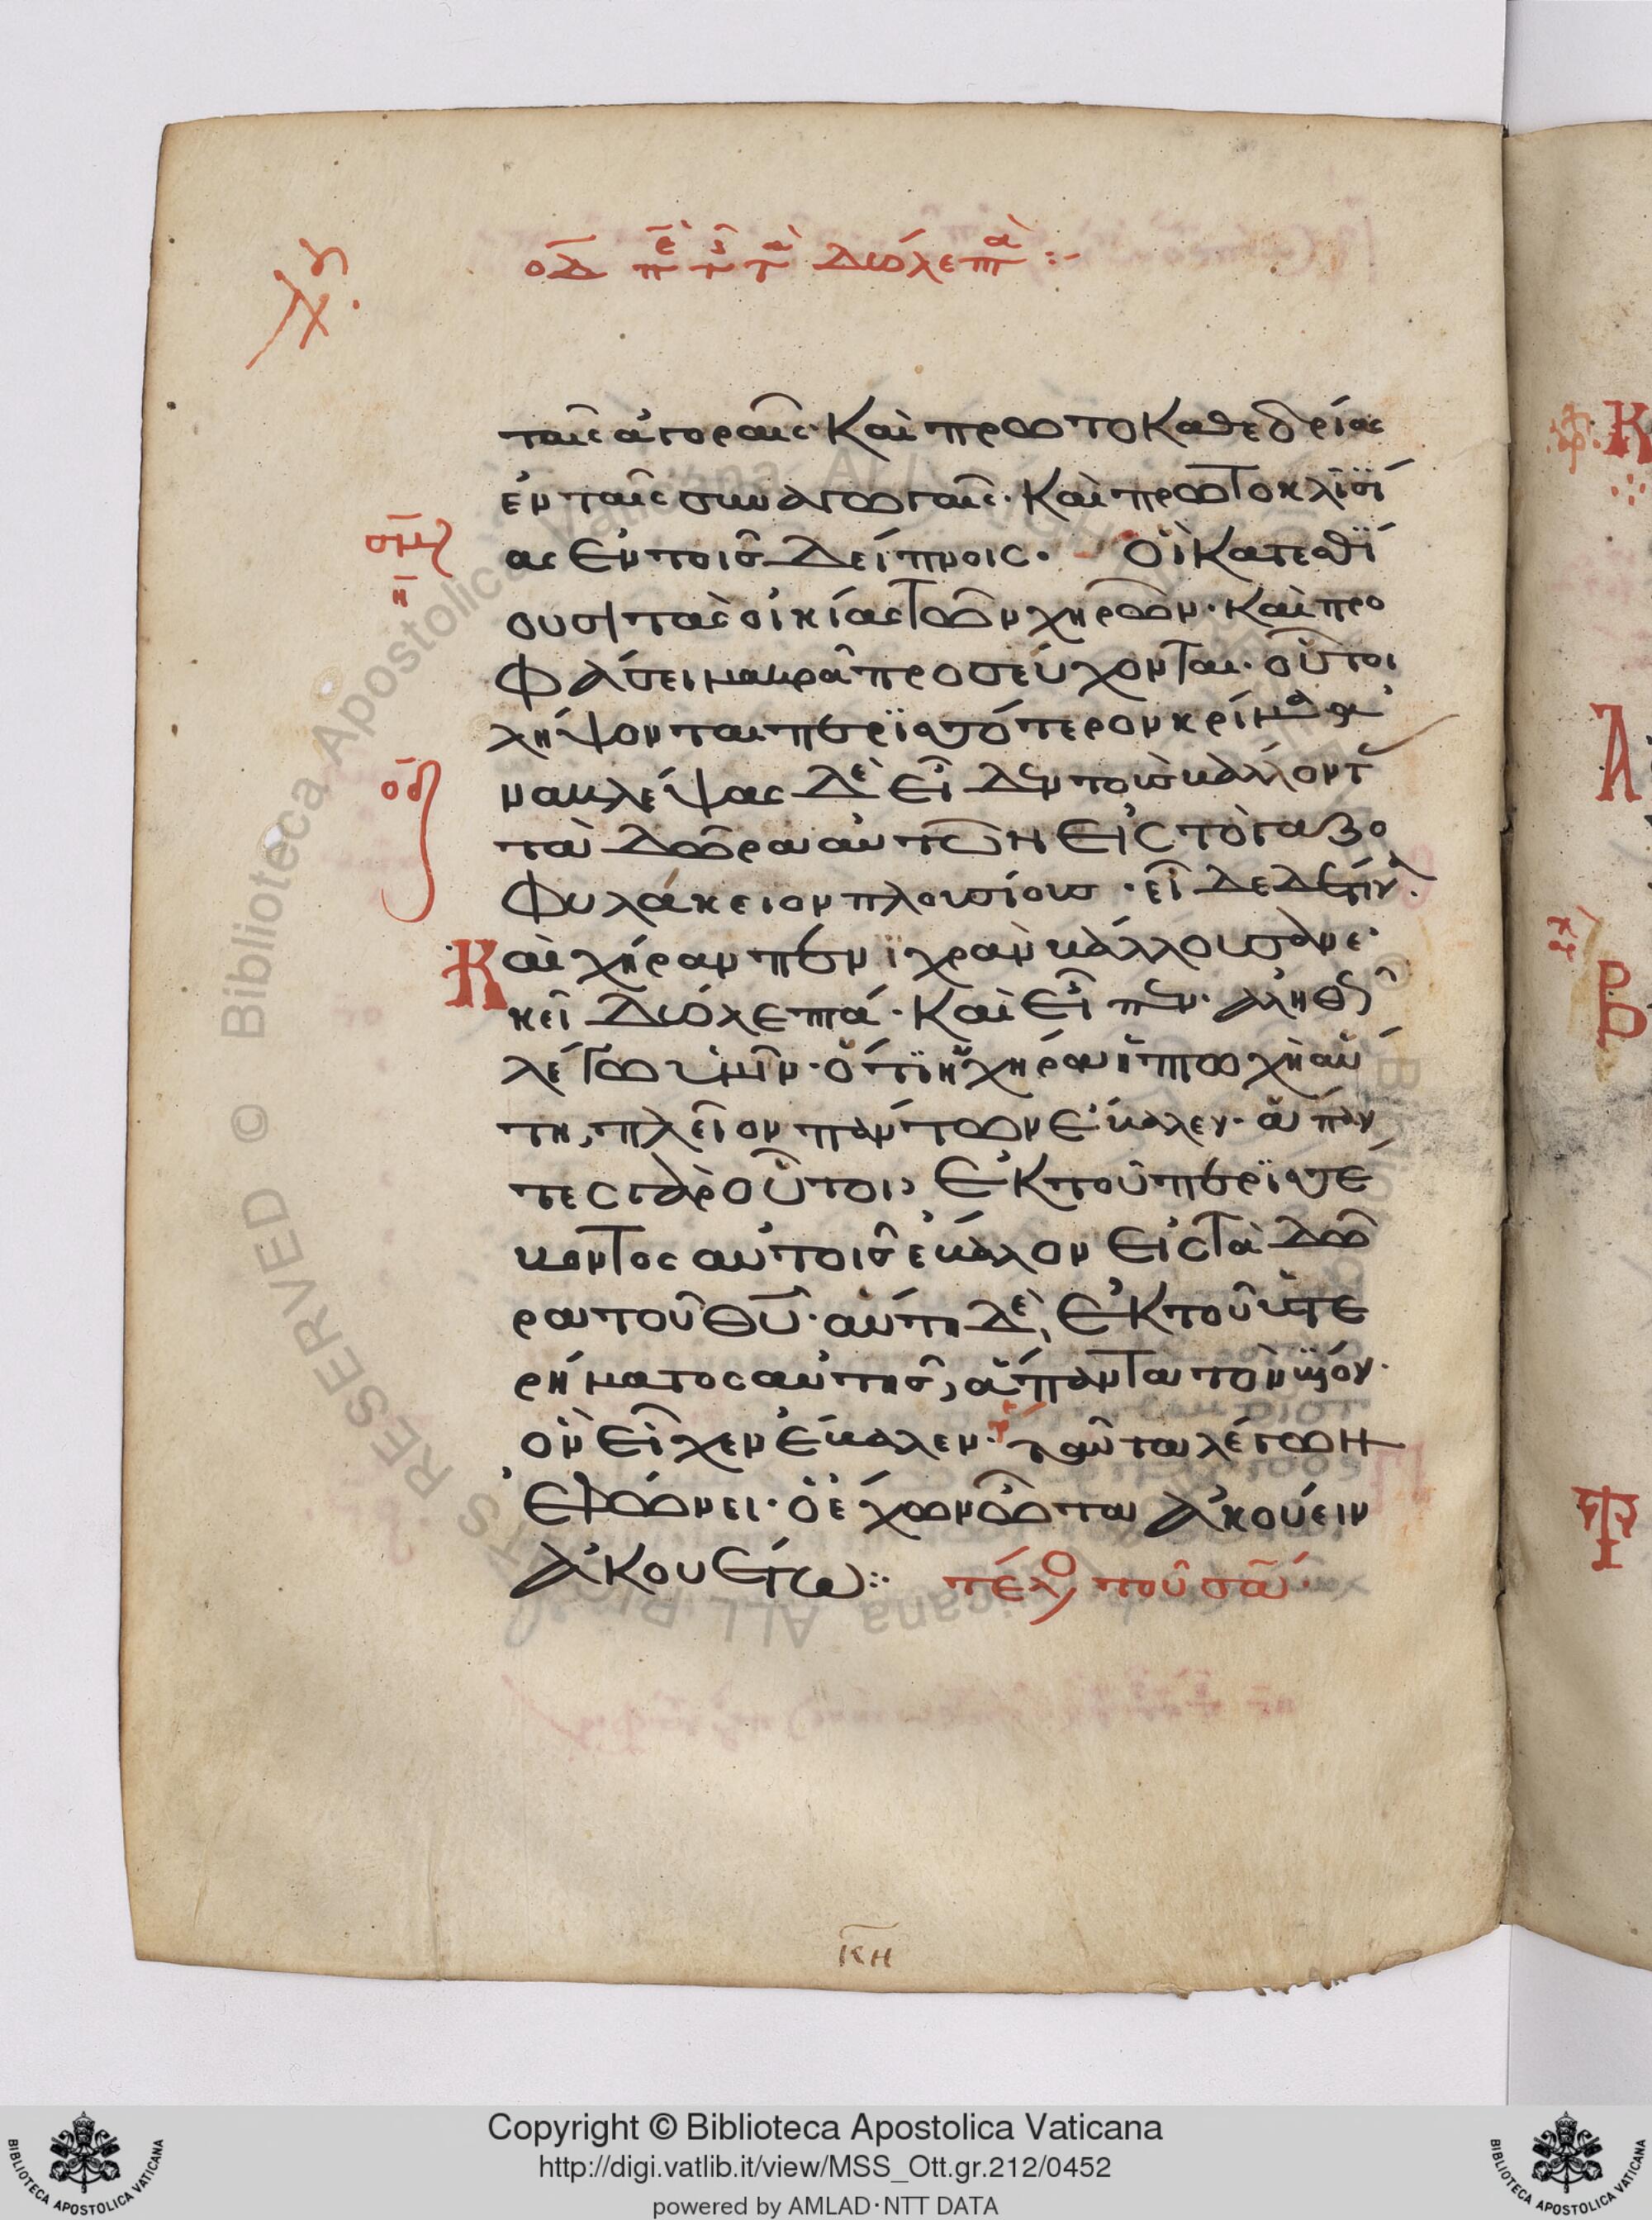 οδ π ε τ ς τ α δύο λεπτα :-
ταῖς ἀγοραῖς· Καὶ πρωτοκαθεδρίας
ἐν ταῖς συναγωγαῖς· Καὶ πρωτοκλϊσί
ας ἐν τοῖς δείπνοις· Οἱ κατεσθί
ουσι τὰς οἰκίας τῶν χηρῶν· καὶ προ
φάσει μακρᾶ προσεύχονται· οὗτοι
λήψονται περϊσσότερον κρίμα· ἀ
ναβλέψας δὲ εἶδεν τοὺς βάλλοντ
τὰ δῶρα αὐτῶν εἰς τὸ γαζο
φυλάκειον πλουσίους· εἶδε δέ τιν
Καὶ χήραν πενϊχρὰν βάλλουσαν ἐ
κεῖ δύο λεπτά· Καὶ εἶπεν· ἀληθ
λέγω ὑμῖν· ὅτϊ ἡ χήρα ἡ πτωχὴ αὕ
τη, πλεῖον πάντων ἔβαλεν· ἅπαν
τες γὰρ οὗτοι, ἐκ τοῦ περϊσσε
βοντος αὐτοῖς ἔβαλον εἰς τὰ δῶ
ρα τοῦ θυ· αὕτη δὲ, ἐκ τοῦ ὑστε
ρήματος αὐτῆς, ἅπαντα τὸν βίον·
ὃν εἶχεν ἔβαλεν· ταῦτα λέγων
ἐφώνει· ὁ ἔχων ὦτα ἀκούειν
ἀκουέτω :· τέλος τοῦ σα
κη
Copyright © Biblioteca Apostolica Vaticana
http://digi.vatlib.it/view/MSS_Ott.gr.212/0452
powered by AMLAD·NTT DATA
BIBLIOTECA APOSTOLICA VATICANA
BIBLIOTECA APOSTOLICA VATICANA